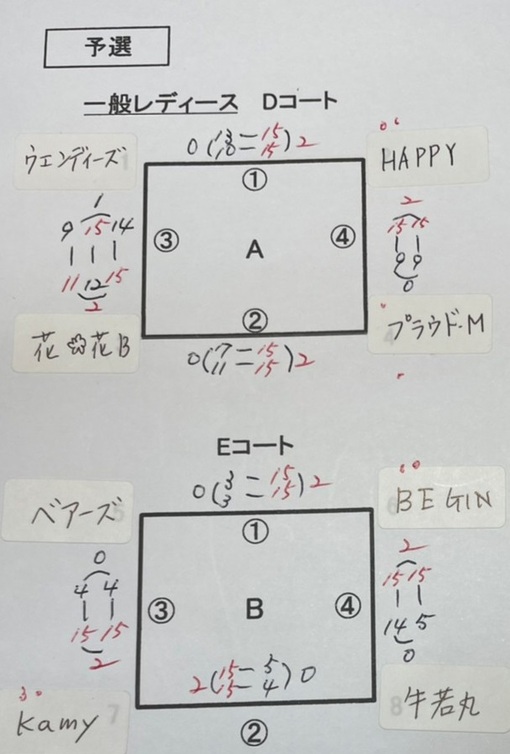 予選
一般レディース Dコート
0 ( 15 15 ) 2
①
ウエンディーズ
HAPPY
1
9 15 14
11 12 15
2
③
A
④
2
15 15
9 9
0
②
花花B
プラウド・M
0 ( 7 11 15 15 ) 2
Eコート
0 ( 3 3 15 15 ) 2
①
ベアーズ 5
BEGIN
0
4 4
15 15
2
③
B
④
2
15 15
14 5
0
2 ( 15 15 5 4 ) 0
②
Kamy 7
8 牛若丸